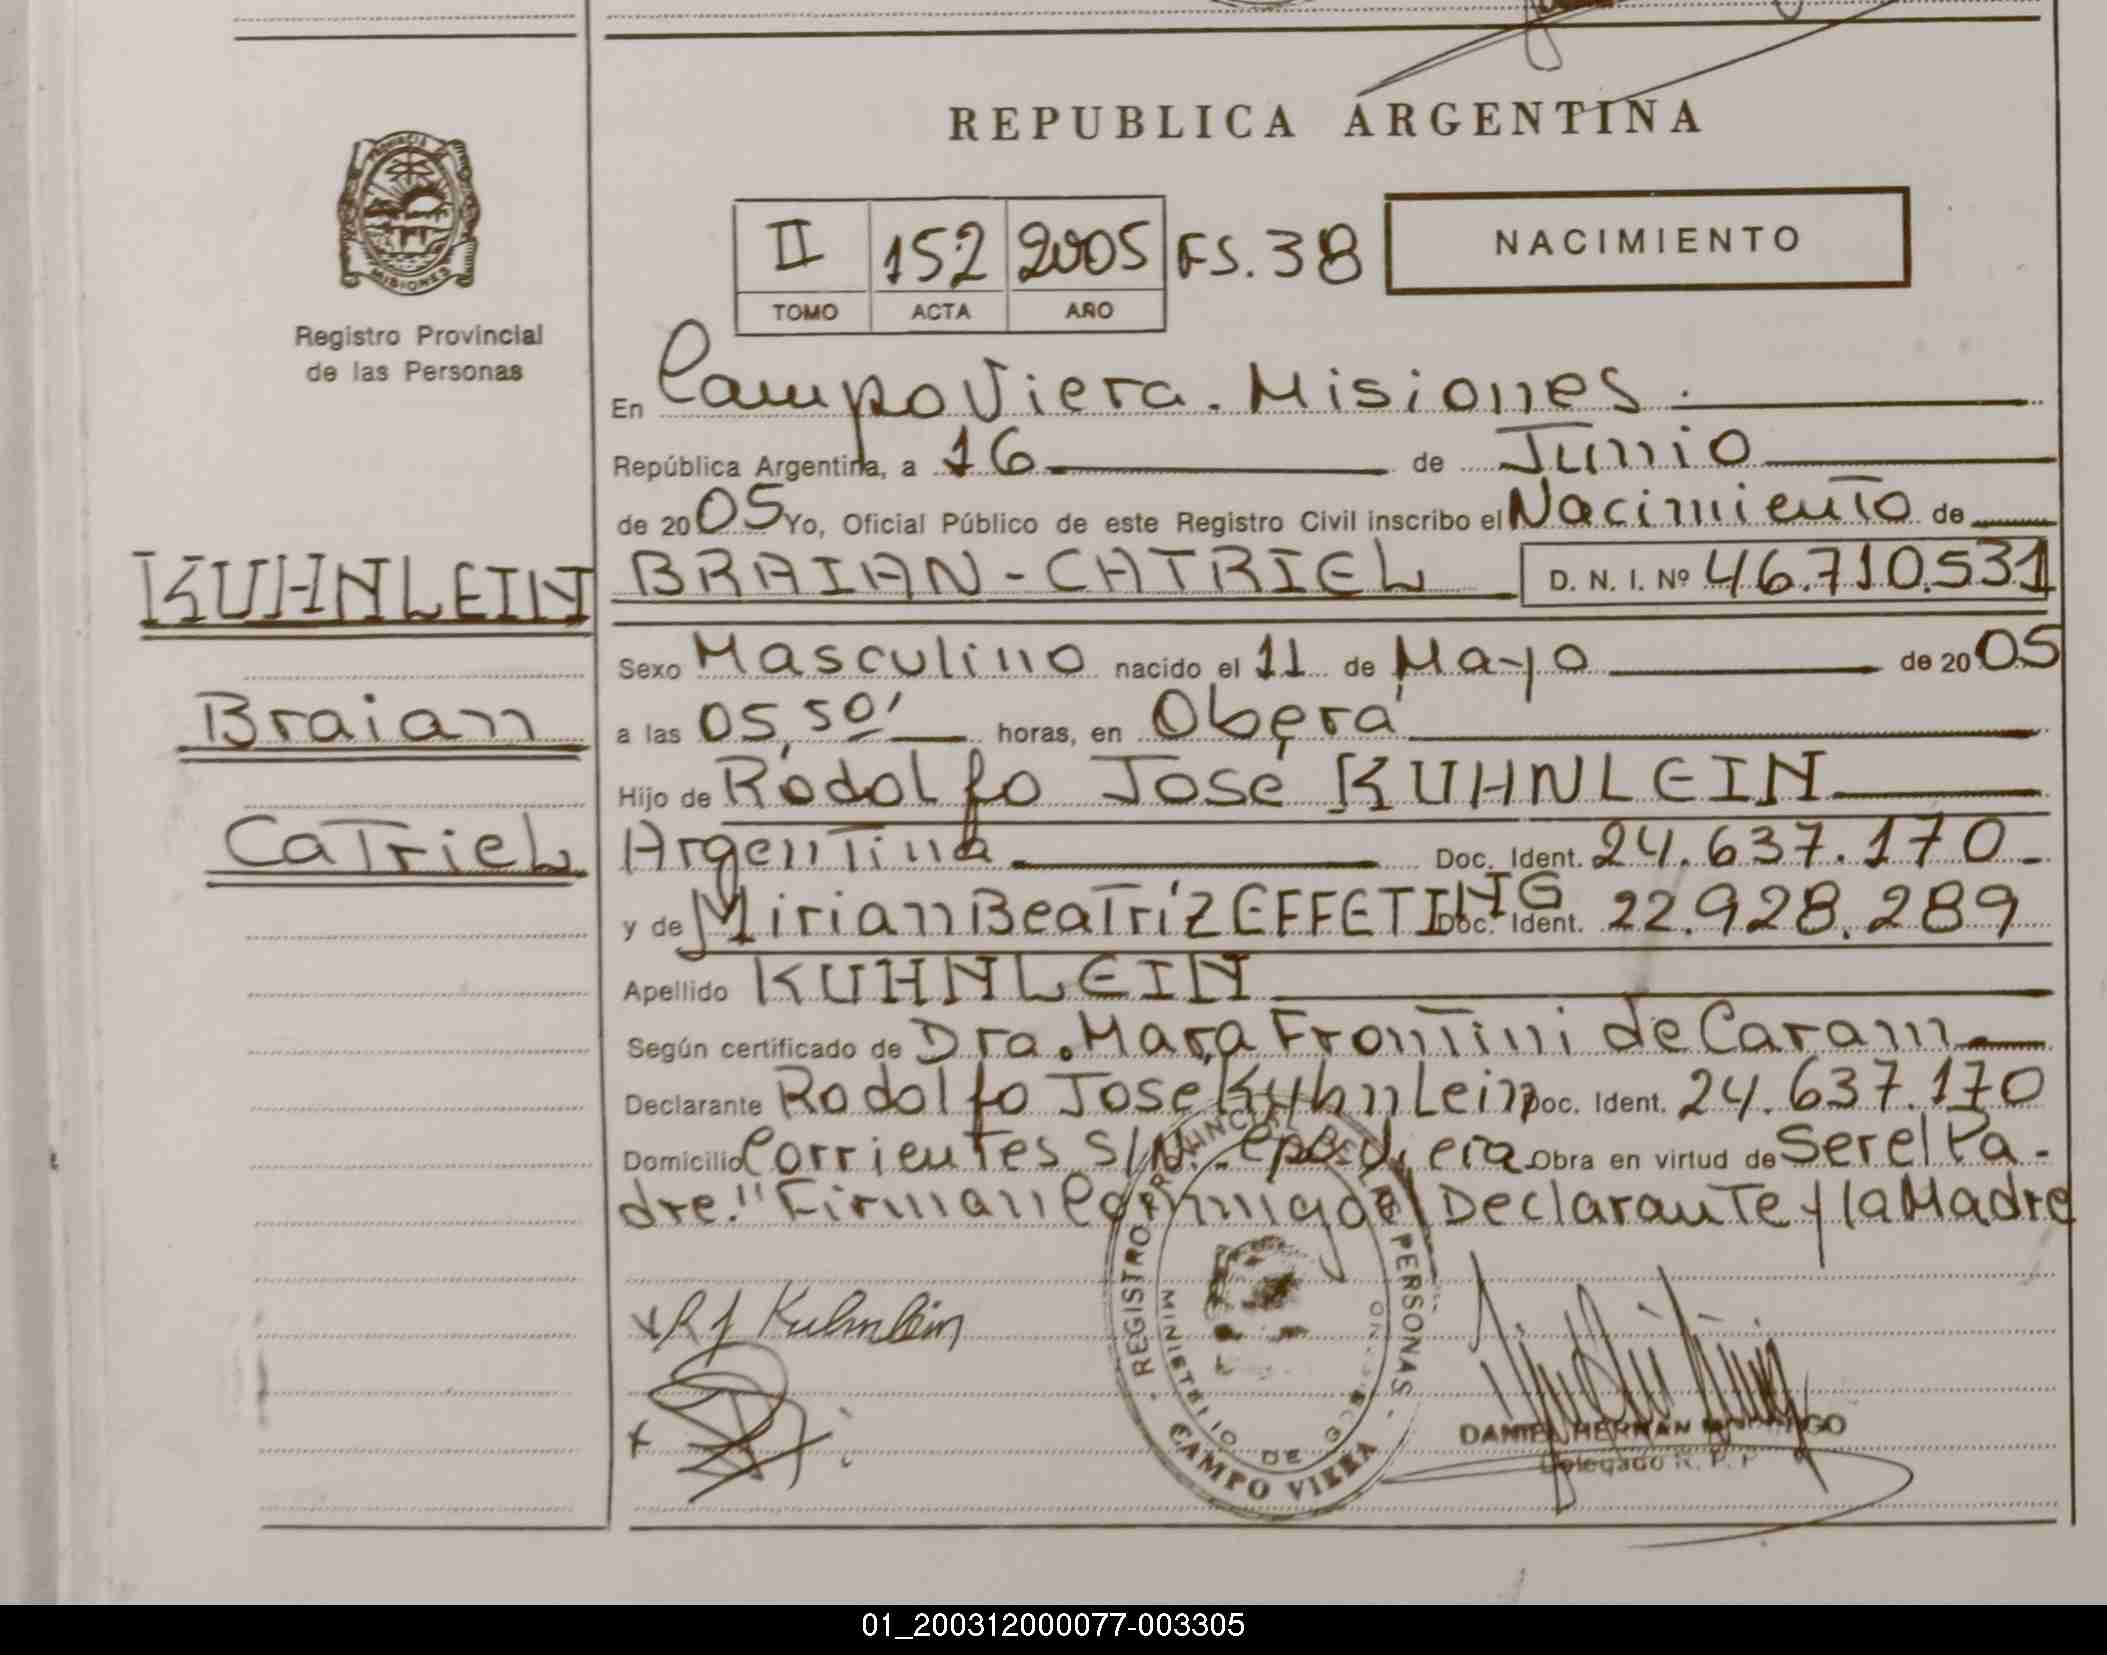 REPUBLICA ARGENTINA
PROVINCIA DE MISIONES
Registro Provincial
de las Personas
II 152 2005 FS. 38
TOMO ACTA AÑO
NACIMIENTO
En Campo Viera. Misiones.
República Argentina, a 16 de Junio
de 2005 Yo, Oficial Público de este Registro Civil inscribo el Nacimiento de
KUHNLEIN BRAIAN-CATRIEL D. N. I. Nº 46.710.531
Sexo Masculino nacido el 11 de Mayo de 2005
Braian
a las 05,50' horas, en Oberá
Hijo de Rodolfo José KUHNLEIN
Catriel
Argentina Doc. Ident. 24.637.170
y de Mirian Beatriz EFFETING Doc. Ident. 22.928.289
Apellido KUHNLEIN
Según certificado de Dra. Mara Frontini de Caram
Declarante Rodolfo José Kuhnlein Doc. Ident. 24.637.170
Domicilio Corrientes S/N. Viera Obra en virtud de Ser el Pa-
dre." Firman Conmigo el Declarante y la Madre
x R J Kuhnlein
x
REGISTRO PROVINCIAL DE LAS PERSONAS
MINISTERIO DE
CAMPO VIERA
DANIEL HERNAN
Delegado R. P. P.
01_200312000077-003305